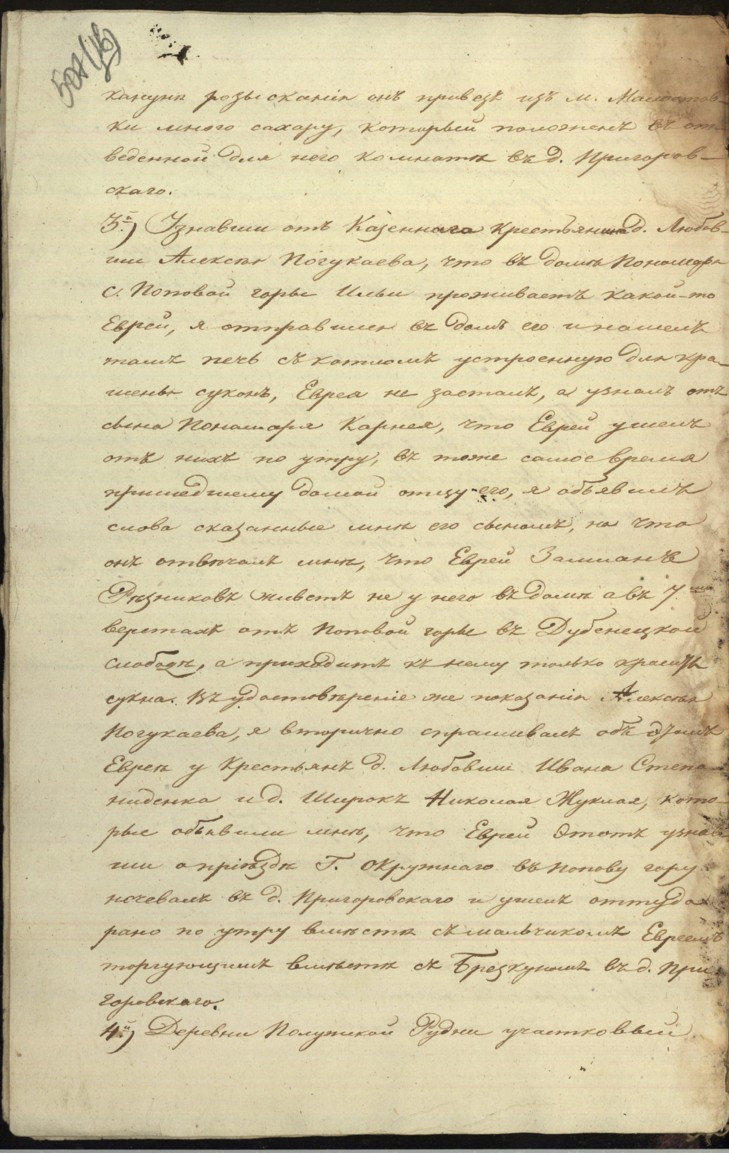 канунѣ розысканія онъ привезъ изъ м.
ки много сахару, который положенъ въ от-
веденной для него комнатѣ въ д. Пригоров-
скаго.
3.й) Узнавши отъ Казеннаго крестьянина д. Любов-
ши Алексѣя Погукаева, что въ домѣ Пономаря
с. Поповой горы Ильи проживаетъ какой-то
Еврей, я отправился въ домъ его и нашелъ
тамъ печь съ котломъ устроенную для кра-
шенья суконъ, Еврея не засталъ, а узналъ отъ
сына Понамаря Карнея, что Еврей ушелъ
отъ нихъ по утру, въ тоже самое время
пришедшему домой отцу его, я объявилъ
слова сказанные мнѣ его сыномъ, на что
онъ отвѣчалъ мнѣ, что Еврей Залманъ
Рѣзниковъ живетъ не у него въ домѣ а въ 7ми
верстахъ отъ Поповой горы въ Дубенецкой
слободѣ, а приходитъ къ нему только красить
сукна. Въ удостовѣреніе же показанія Алексѣя
Погукаева, я вторично спрашивалъ объ этомъ
Евреѣ у Крестьянъ д. Любовши Ивана Степа-
ниденка и д. Широкъ Николая Жуклая, кото-
рые объявили мнѣ, что Еврей этотъ узнав-
ши о пріѣздѣ Г. Окружнаго въ Попову гору
ночевалъ въ д. Пригоровскаго и ушелъ оттуда
рано по утру вмѣстѣ съ мальчикомъ Евреемъ
торгующимъ вмѣстѣ съ Брезкуномъ въ д. При-
горовскаго.
4.й) Деревни Полужской Рудни участковый